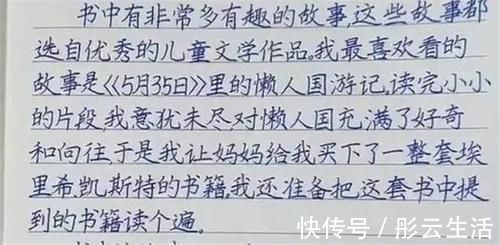 书中有非常多有趣的故事,这些故事都
选自优秀的儿童文学作品。我最喜欢看的
故事是《5月35日》里的懒人国游记,读完小小
的片段,我意犹未尽对懒人国充满了好奇
和向往,于是我让妈妈给我买下了一整套埃
里希.凯斯特的书籍,我还准备把这套书中提
到的书籍读个遍。
快传号/彤云生活